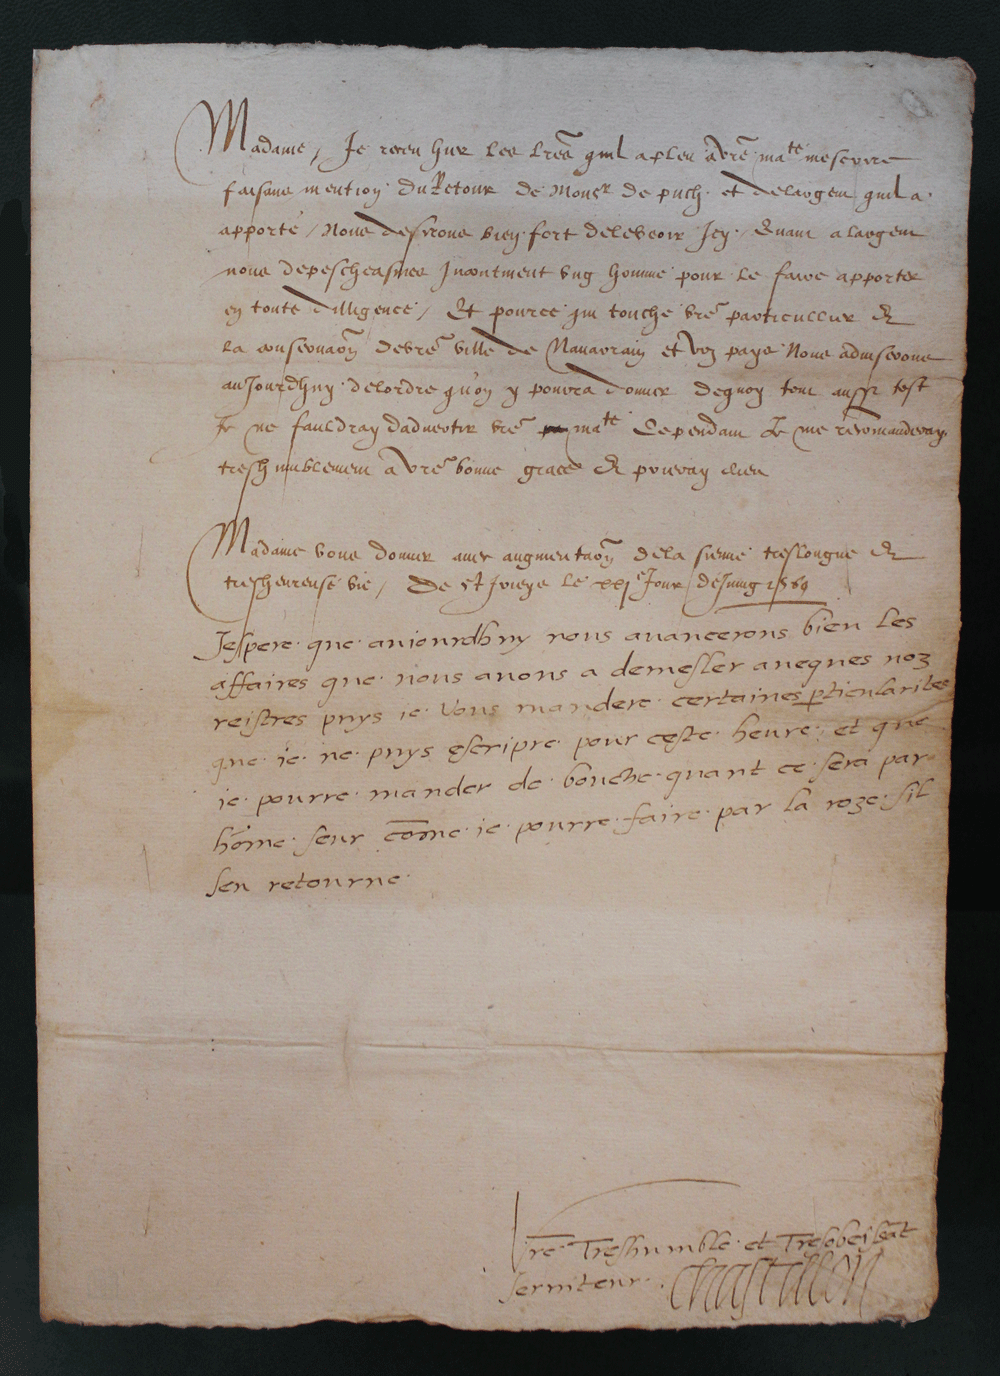 Madame, Je receu hier les lrẽs quil a pleu a vrẽ ma^te mescrire
faisans mention du Retour de Mons^r de puch et de largem quil a
apporté / Nous desirons bien fort de le veoir Icy, Quant a largem
nous depescheasmes Incontment ung homme pour le faire apporter
en toute dilligence, Et pource qui touche vrẽ particullier &
la conservaõn de vrẽ ville de Navarraing et voz pays Nous adviserons
auJourdhuy de lordre qu'on y pourra donner de quoy tout aussi tost
Je ne fauldray dadvertir vrẽ ma^te Cependam Je me recomanderay
treshumblement a vrẽ bonne grace & prieray dieu
Madame vous donner avec augmentaõn de la sienne treslongue &
tresheureuse vie, De S^t Jrieys le xxj^e Jour de Juing 1569
Jespere que auiourdhuy nous auancerons bien les
affaires que nous auons a demesler aueques noz
reistres puys ie vous mandere certaines pticularites
que ie ne puys escripre pour ceste heure et que
ie pourre mander de bouche quant ce sera par
hõme seur cõme ie pourre faire par la roze sil
sen retourne
Vrẽ Treshumble et Tresobeissãt
seruiteur Chastillon